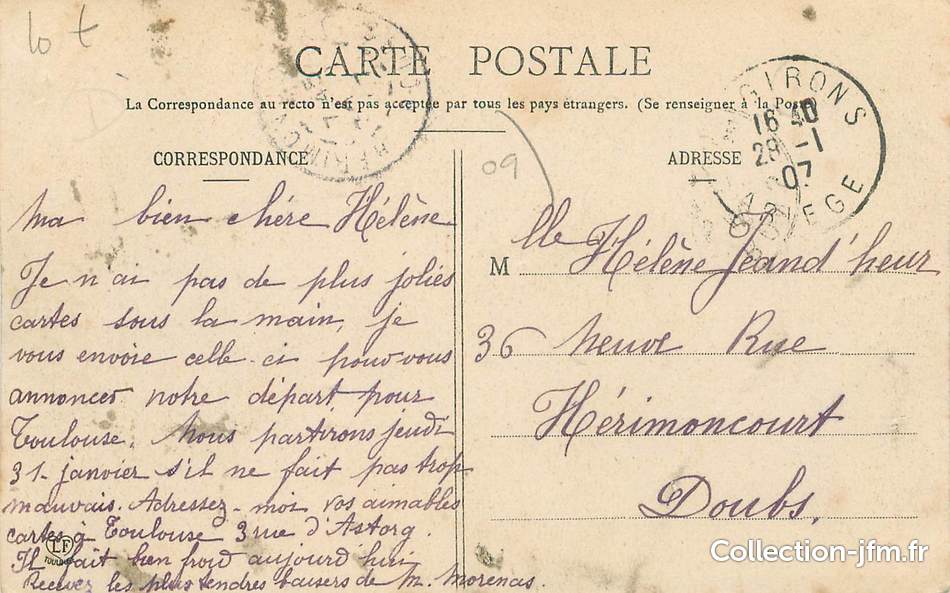 10 t
CARTE POSTALE
La Correspondance au recto n'est pas acceptée par tous les pays étrangers. (Se renseigner à la Poste)
CORRESPONDANCE
Ma bien chère Hélène
Je n'ai pas de plus jolies
cartes sous la main, je
vous envoie celle-ci pour vous
annoncer notre départ pour
Toulouse. Nous partirons jeudi
31 janvier s'il ne fait pas trop
mauvais. Adressez-moi vos aimables
cartes à Toulouse 3 rue d'Astorg.
Il fait bien froid aujourd'hui
Recevez les plus tendres baisers de M. Morenas.
LF
09
ADRESSE
GIRONS
16 40
28 -1
07
ARIEGE
Mlle Hélène Jeand'heur
36 Neuve Rue
Hérimoncourt
Doubs.
Collection-jfm.fr